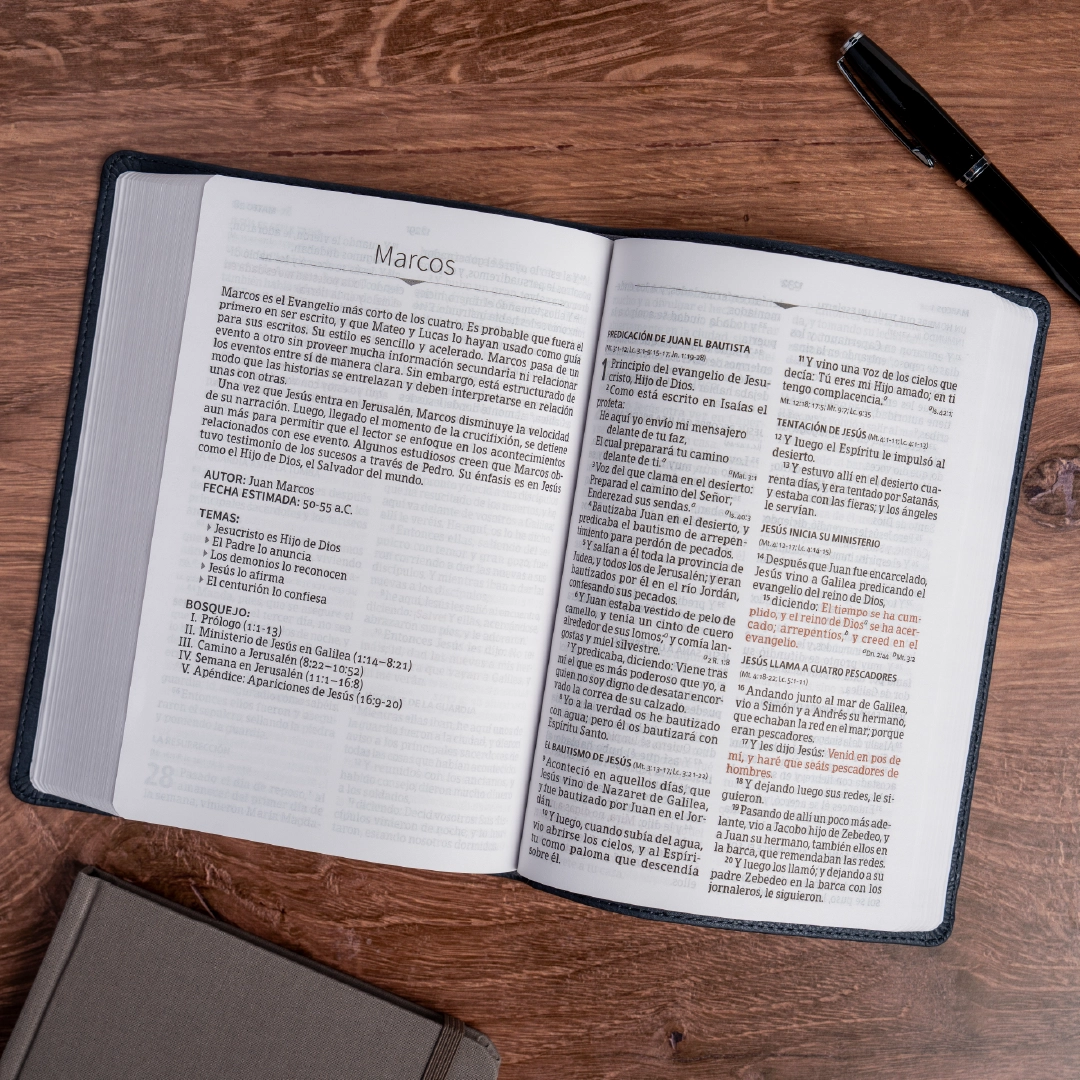 Marcos
Marcos es el Evangelio más corto de los cuatro. Es probable que fuera el
primero en ser escrito, y que Mateo y Lucas lo hayan usado como guía
para sus escritos. Su estilo es sencillo y acelerado. Marcos pasa de un
evento a otro sin proveer mucha información secundaria ni relacionar
los eventos entre sí de manera clara. Sin embargo, está estructurado de
modo que las historias se entrelazan y deben interpretarse en relación
unas con otras.
Una vez que Jesús entra en Jerusalén, Marcos disminuye la velocidad
de su narración. Luego, llegado el momento de la crucifixión, se detiene
aun más para permitir que el lector se enfoque en los acontecimientos
relacionados con ese evento. Algunos estudiosos creen que Marcos ob-
tuvo testimonio de los sucesos a través de Pedro. Su énfasis es en Jesús
como el Hijo de Dios, el Salvador del mundo.
AUTOR: Juan Marcos
FECHA ESTIMADA: 50-55 a.C.
TEMAS:
Jesucristo es Hijo de Dios
El Padre lo anuncia
Los demonios lo reconocen
Jesús lo afirma
El centurión lo confiesa
BOSQUEJO:
I. Prólogo (1:1-13)
II. Ministerio de Jesús en Galilea (1:14–8:21)
III. Camino a Jerusalén (8:22–10:52)
IV. Semana en Jerusalén (11:1–16:8)
V. Apéndice: Apariciones de Jesús (16:9-20)
PREDICACIÓN DE JUAN EL BAUTISTA
(Mt. 3:1-12; Lc. 3:1-9, 15-17; Jn. 1:19-28)
1 Principio del evangelio de Jesu-
cristo, Hijo de Dios.
2 Como está escrito en Isaías el
profeta:
He aquí yo envío mi mensajero
delante de tu faz,
El cual preparará tu camino
delante de ti.a a Mal. 3:1
3 Voz del que clama en el desierto:
Preparad el camino del Señor;
Enderezad sus sendas.a a Is. 40:3
4 Bautizaba Juan en el desierto, y
predicaba el bautismo de arrepen-
timiento para perdón de pecados.
5 Y salían a él toda la provincia de
Judea, y todos los de Jerusalén; y eran
bautizados por él en el río Jordán,
confesando sus pecados.
6 Y Juan estaba vestido de pelo de
camello, y tenía un cinto de cuero
alrededor de sus lomos;a y comía lan-
gostas y miel silvestre. a 2 R. 1:8
7 Y predicaba, diciendo: Viene tras
mí el que es más poderoso que yo, a
quien no soy digno de desatar encor-
vado la correa de su calzado.
8 Yo a la verdad os he bautizado
con agua; pero él os bautizará con
Espíritu Santo.
EL BAUTISMO DE JESÚS (Mt. 3:13-17; Lc. 3:21-22)
9 Aconteció en aquellos días, que
Jesús vino de Nazaret de Galilea,
y fue bautizado por Juan en el Jor-
dán.
10 Y luego, cuando subía del agua,
vio abrirse los cielos, y al Espíri-
tu como paloma que descendía
sobre él.
11 Y vino una voz de los cielos que
decía: Tú eres mi Hijo amado; en ti
tengo complacencia.a a Is. 42:1;
Mt. 12:18; 17:5; Mr. 9:7; Lc. 9:35
TENTACIÓN DE JESÚS (Mt. 4:1-11; Lc. 4:1-13)
12 Y luego el Espíritu le impulsó al
desierto.
13 Y estuvo allí en el desierto cua-
renta días, y era tentado por Satanás,
y estaba con las fieras; y los ángeles
le servían.
JESÚS INICIA SU MINISTERIO
(Mt. 4:12-17; Lc. 4:14-15)
14 Después que Juan fue encarcelado,
Jesús vino a Galilea predicando el
evangelio del reino de Dios,
15 diciendo: El tiempo se ha cum-
plido, y el reino de Diosa se ha acer-
cado; arrepentíos,b y creed en el
evangelio. a Dn. 2:44 b Mt. 3:2
JESÚS LLAMA A CUATRO PESCADORES
(Mt. 4:18-22; Lc. 5:1-11)
16 Andando junto al mar de Galilea,
vio a Simón y a Andrés su hermano,
que echaban la red en el mar; porque
eran pescadores.
17 Y les dijo Jesús: Venid en pos de
mí, y haré que seáis pescadores de
hombres.
18 Y dejando luego sus redes, le si-
guieron.
19 Pasando de allí un poco más ade-
lante, vio a Jacobo hijo de Zebedeo, y
a Juan su hermano, también ellos en
la barca, que remendaban las redes.
20 Y luego los llamó; y dejando a su
padre Zebedeo en la barca con los
jornaleros, le siguieron.